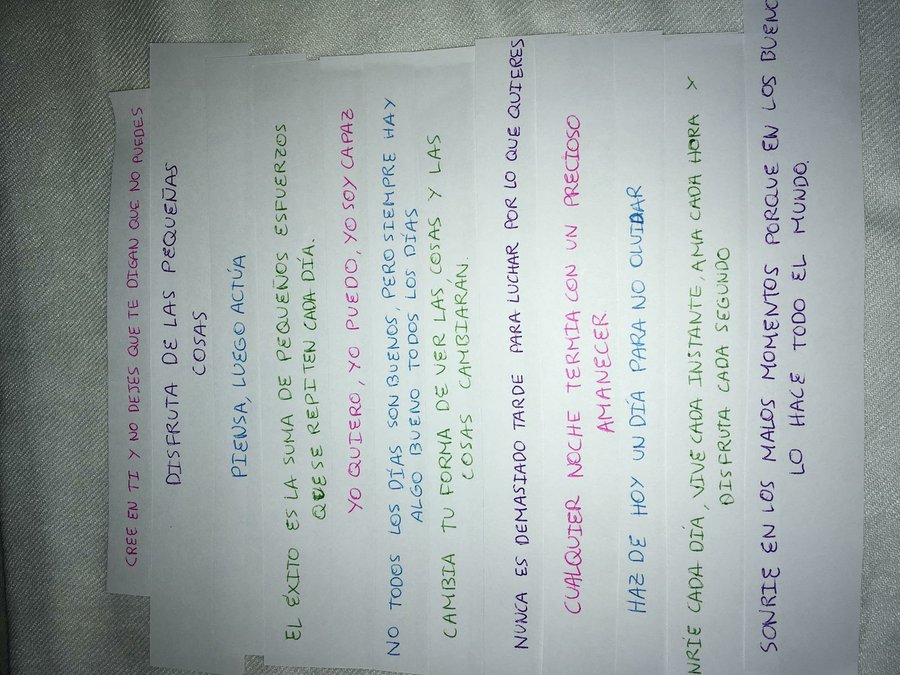 CREE EN TI Y NO DEJES QUE TE DIGAN QUE NO PUEDES
DISFRUTA DE LAS PEQUEÑAS
COSAS
PIENSA, LUEGO ACTÚA
EL ÉXITO ES LA SUMA DE PEQUEÑOS ESFUERZOS
QUE SE REPITEN CADA DÍA.
YO QUIERO, YO PUEDO, YO SOY CAPAZ
NO TODOS LOS DÍAS SON BUENOS, PERO SIEMPRE HAY
ALGO BUENO TODOS LOS DÍAS
CAMBIA TU FORMA DE VER LAS COSAS Y LAS
COSAS CAMBIARÁN.
NUNCA ES DEMASIADO TARDE PARA LUCHAR POR LO QUE QUIERES
CUALQUIER NOCHE TERMIA CON UN PRECIOSO
AMANECER
HAZ DE HOY UN DÍA PARA NO OLVIDAR
NRÍE CADA DÍA, VIVE CADA INSTANTE, AMA CADA HORA Y
DISFRUTA CADA SEGUNDO
SONRIE EN LOS MALOS MOMENTOS PORQUE EN LOS BUENO
LO HACE TODO EL MUNDO.